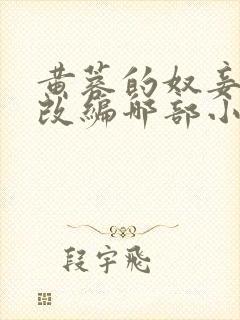 黄蓉的奴妾
改编那部小
段宇飛